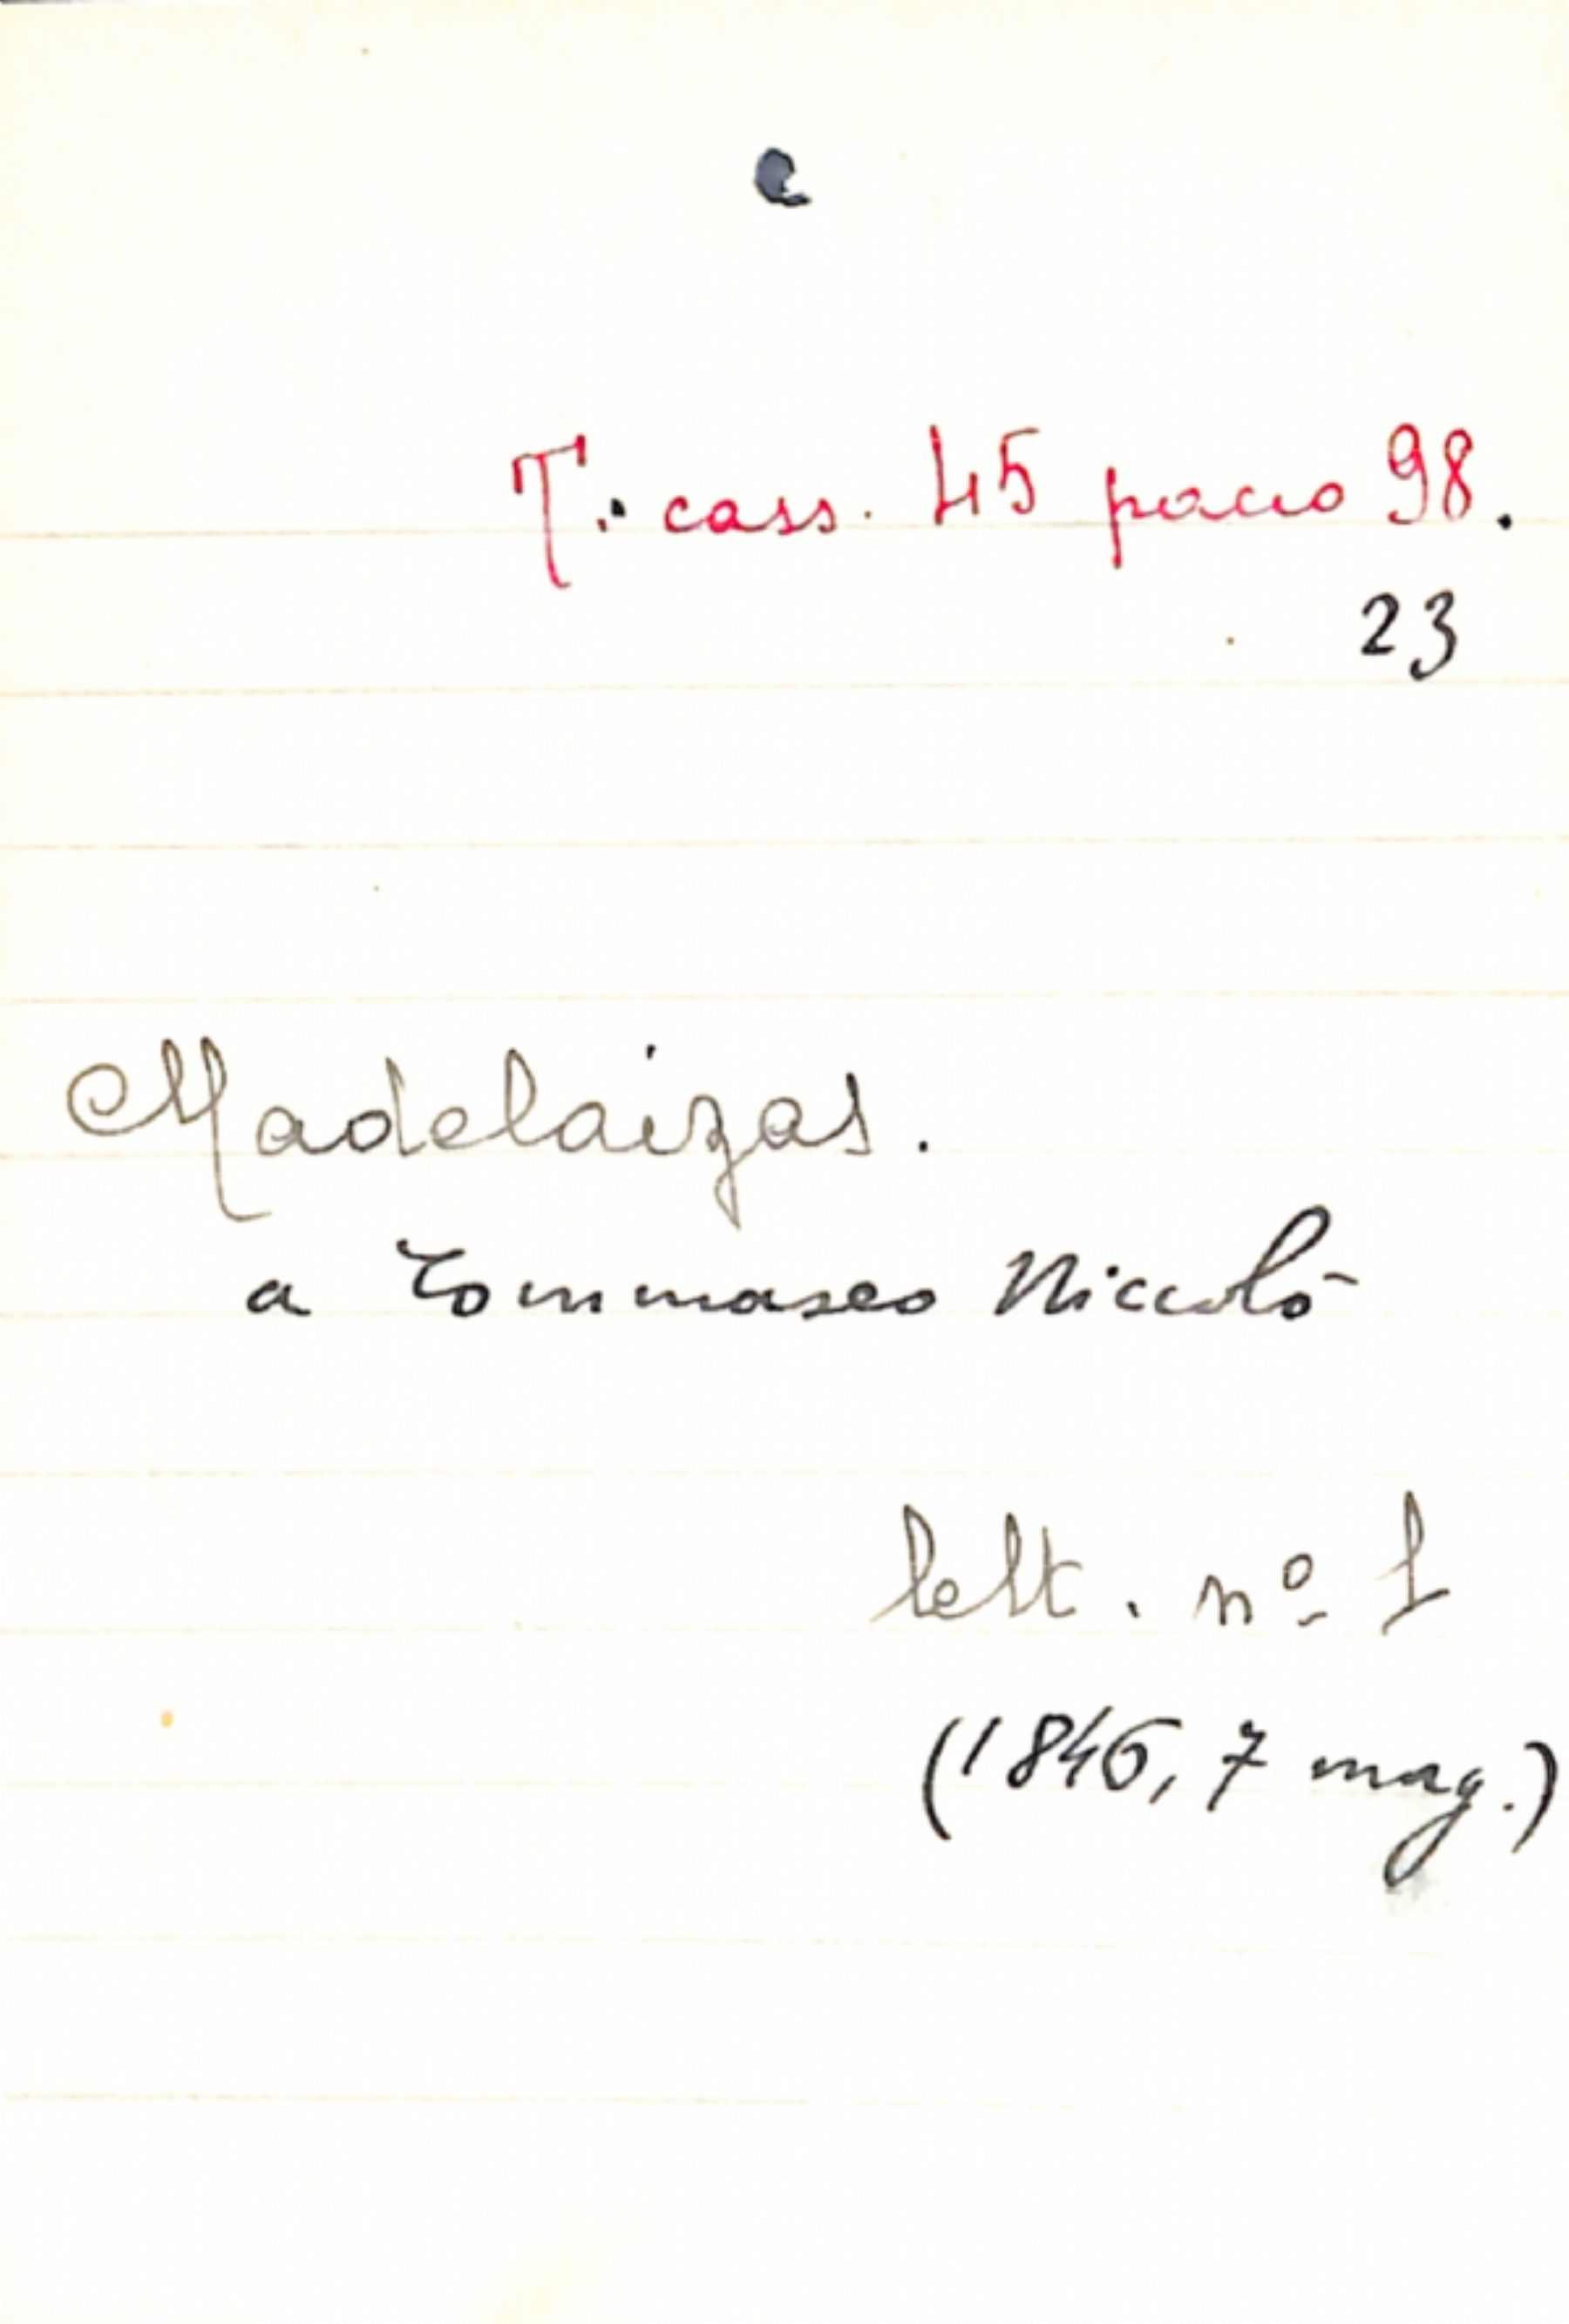 T. cass. 45 pacco 98.
23
Madelaizas.
a Tommaseo Niccolò
lett. nº 1
(1846, 7 mag.)